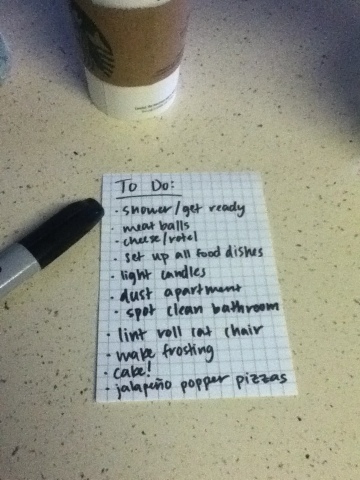 To Do:
· shower/get ready
· meat balls
· cheese/rotel
· set up all food dishes
· light candles
· dust apartment
· spot clean bathroom
· lint roll cat chair
· make frosting
· cake!
· jalapeño popper pizzas